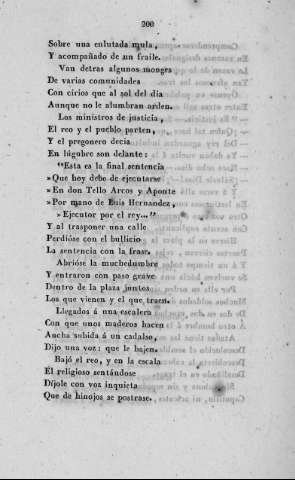 200
Sobre una enlutada mula,
Y acompañado de un fraile.
Van detras algunos monges
De varias comunidades
Con cirios que al sol del dia
Aunque no le alumbran arden.
Los ministros de justicia,
El reo y el pueblo parten,
Y el pregonero decia
En lúgubre son delante:
"Esta es la final sentencia
» Que hoy debe de ejecutarse
» En don Tello Arcos y Aponte
» Por mano de Luis Hernandez,
» Ejecutor por el rey..."
Y al trasponer una calle
Perdióse con el bullicio
La sentencia con la frase.
Abrióse la muchedumbre
Y entraron con paso grave
Dentro de la plaza juntos
Los que vienen y el que traen.
Llegados á una escalera
Con que unos maderos hacen
Ancha subida á un cadalso,
Dijo una voz: que le bajen.
Bajó el reo, y en la escala
El religioso sentándose
Díjole con voz inquieta
Que de hinojos se postrase.